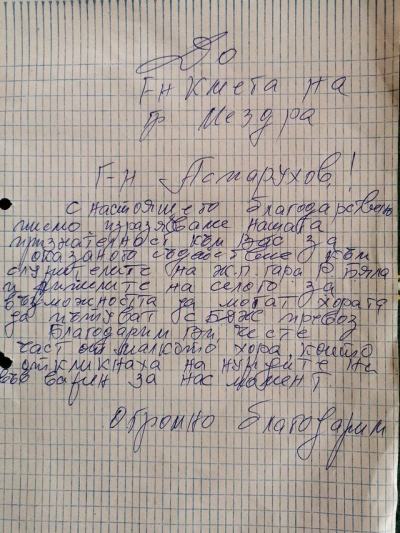 До
Г-н Кмета на
гр Мездра
Г-н Аспарухов,!
С настоящето благодарствено
писмо изразяваме нашата
признателност към Вас за
оказаното съдействие към
служителите на Ж.П. гара Р. Бяла
и жителите на селото за
възможността да могат хората
да пътуват с БДЖ превоз
Благодарим Ви, че сте
част от малкото хора, които
откликнаха на нуждите ни
във важен за нас момент
Огромно благодарим